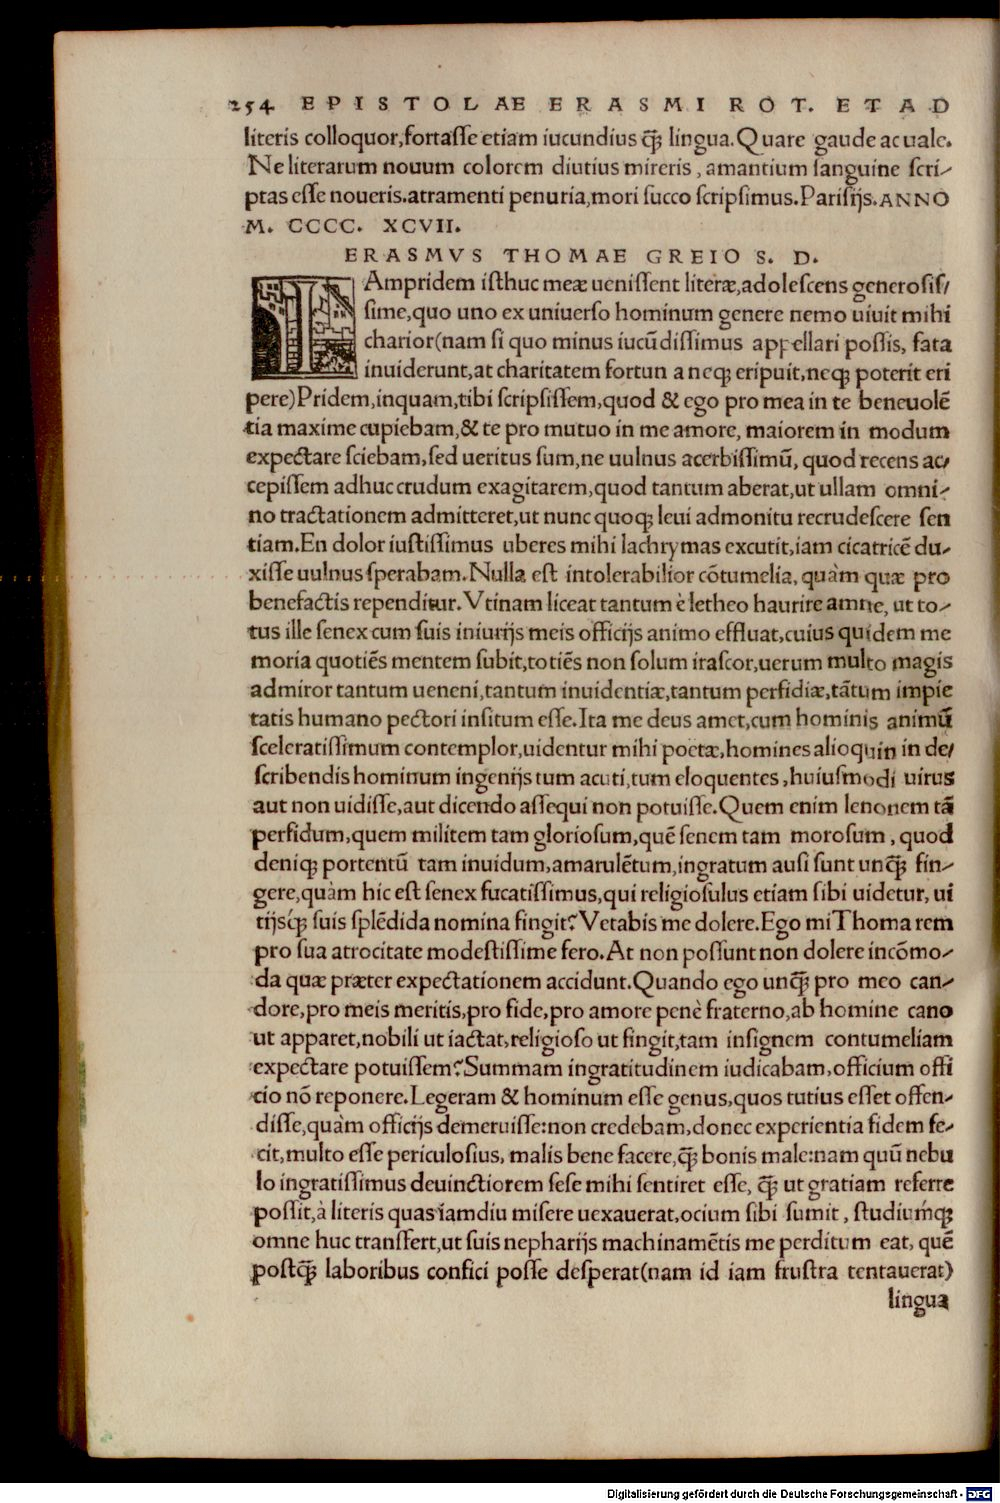 254 EPISTOLAE ERASMI ROT. ET AD
literis colloquor,fortasse etiam iucundius q̃ꝫ lingua.Quare gaude ac uale.
Ne literarum nouum colorem diutius mireris, amantium sanguine scri-
ptas esse noueris.atramenti penuria,mori succo scripsimus.Parisijs.ANNO
M. CCCC. XCVII.
ERASMVS THOMAE GREIO S. D.
IAmpridem isthuc meæ uenissent literæ,adolescens generosis/
sime,quo uno ex uniuerso hominum genere nemo uiuit mihi
charior(nam si quo minus iucũdissimus appellari possis, fata
inuiderunt,at charitatem fortun a neqꝫ eripuit,neqꝫ poterit eri
pere)Pridem,inquam,tibi scripsissem,quod & ego pro mea in te beneuolẽ
tia maxime cupiebam,& te pro mutuo in me amore, maiorem in modum
expectare sciebam,sed ueritus sum,ne uulnus acerbissimũ, quod recens ac/
cepissem adhuc crudum exagitarem,quod tantum aberat,ut ullam omni-
no tractationem admitteret,ut nunc quoqꝫ leui admonitu recrudescere sen
tiam.En dolor iustissimus uberes mihi lachrymas excutit,iam cicatricẽ du-
xisse uulnus sperabam.Nulla est intolerabilior cõtumelia, quàm quæ pro
benefactis rependitur.Vtinam liceat tantum è letheo haurire amne, ut to-
tus ille senex cum suis iniurijs meis officijs animo effluat,cuius quidem me
moria quotiẽs mentem subit,totiẽs non solum irascor,uerum multo magis
admiror tantum ueneni,tantum inuidentiæ,tantum perfidiæ,tãtum impie
tatis humano pectori insitum esse.Ita me deus amet,cum hominis animũ
sceleratissimum contemplor,uidentur mihi poetæ,homines alioquin in de/
scribendis hominum ingenijs tum acuti,tum eloquentes,huiusmodi uirus
aut non uidisse,aut dicendo assequi non potuisse.Quem enim lenonem tã
perfidum,quem militem tam gloriosum,quẽ senem tam morosum, quod
deniqꝫ portentũ tam inuidum,amarulẽtum,ingratum ausi sunt unq̃ꝫ fin-
gere,quàm hic est senex fucatissimus,qui religiosulus etiam sibi uidetur, ui
tijsq́ꝫ suis splẽdida nomina fingit?Vetabis me dolere.Ego mi Thoma rem
pro sua atrocitate modestissime fero.At non possunt non dolere incõmo-
da quæ præter expectationem accidunt.Quando ego unq̃ꝫ pro meo can-
dore,pro meis meritis,pro fide,pro amore penè fraterno,ab homine cano
ut apparet,nobili ut iactat,religioso ut fingit,tam insignem contumeliam
expectare potuissem?Summam ingratitudinem iudicabam,officium offi
cio nõ reponere.Legeram & hominum esse genus,quos tutius esset offen-
disse,quàm officijs demeruisse:non credebam,donec experientia fidem fe-
cit,multo esse periculosius, malis bene facere,q̃ꝫ bonis male:nam quũ nebu
lo ingratissimus deuinctiorem sese mihi sentiret esse, q̃ꝫ ut gratiam referre
possit,à literis quas iamdiu misere uexauerat,ocium sibi sumit, studiumq́ꝫ
omne huc transfert,ut suis nepharijs machinamẽtis me perditum eat, quẽ
postq̃ꝫ laboribus confici posse desperat(nam id iam frustra tentauerat)
lingua
Digitalisierung gefördert durch die Deutsche Forschungsgemeinschaft - DFG